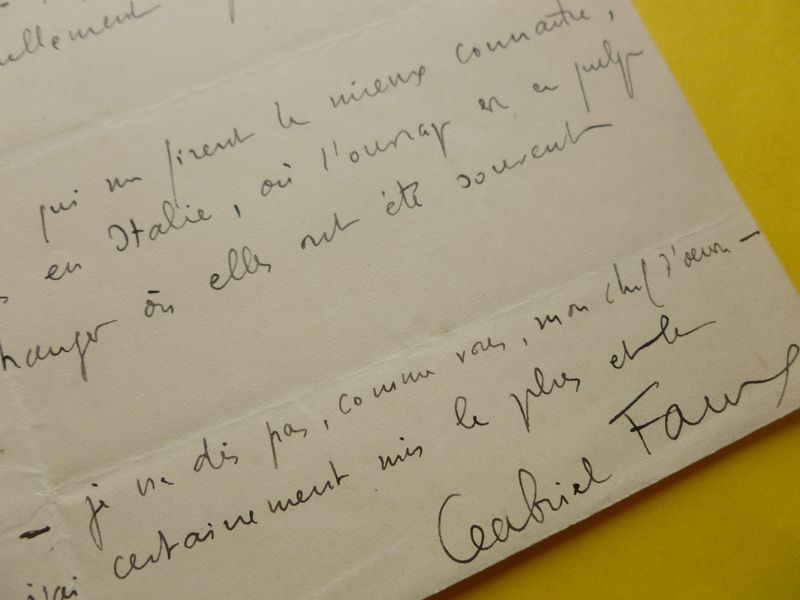 ellement
qui me firent le mieux connaître,
en Italie, où l'ouvrage est en quelque
hanger où elles ont été souvent
— je ne dis pas, comme vous, mon chef d'œuvre —
j'ai certainement mis le plus
Gabriel Faure